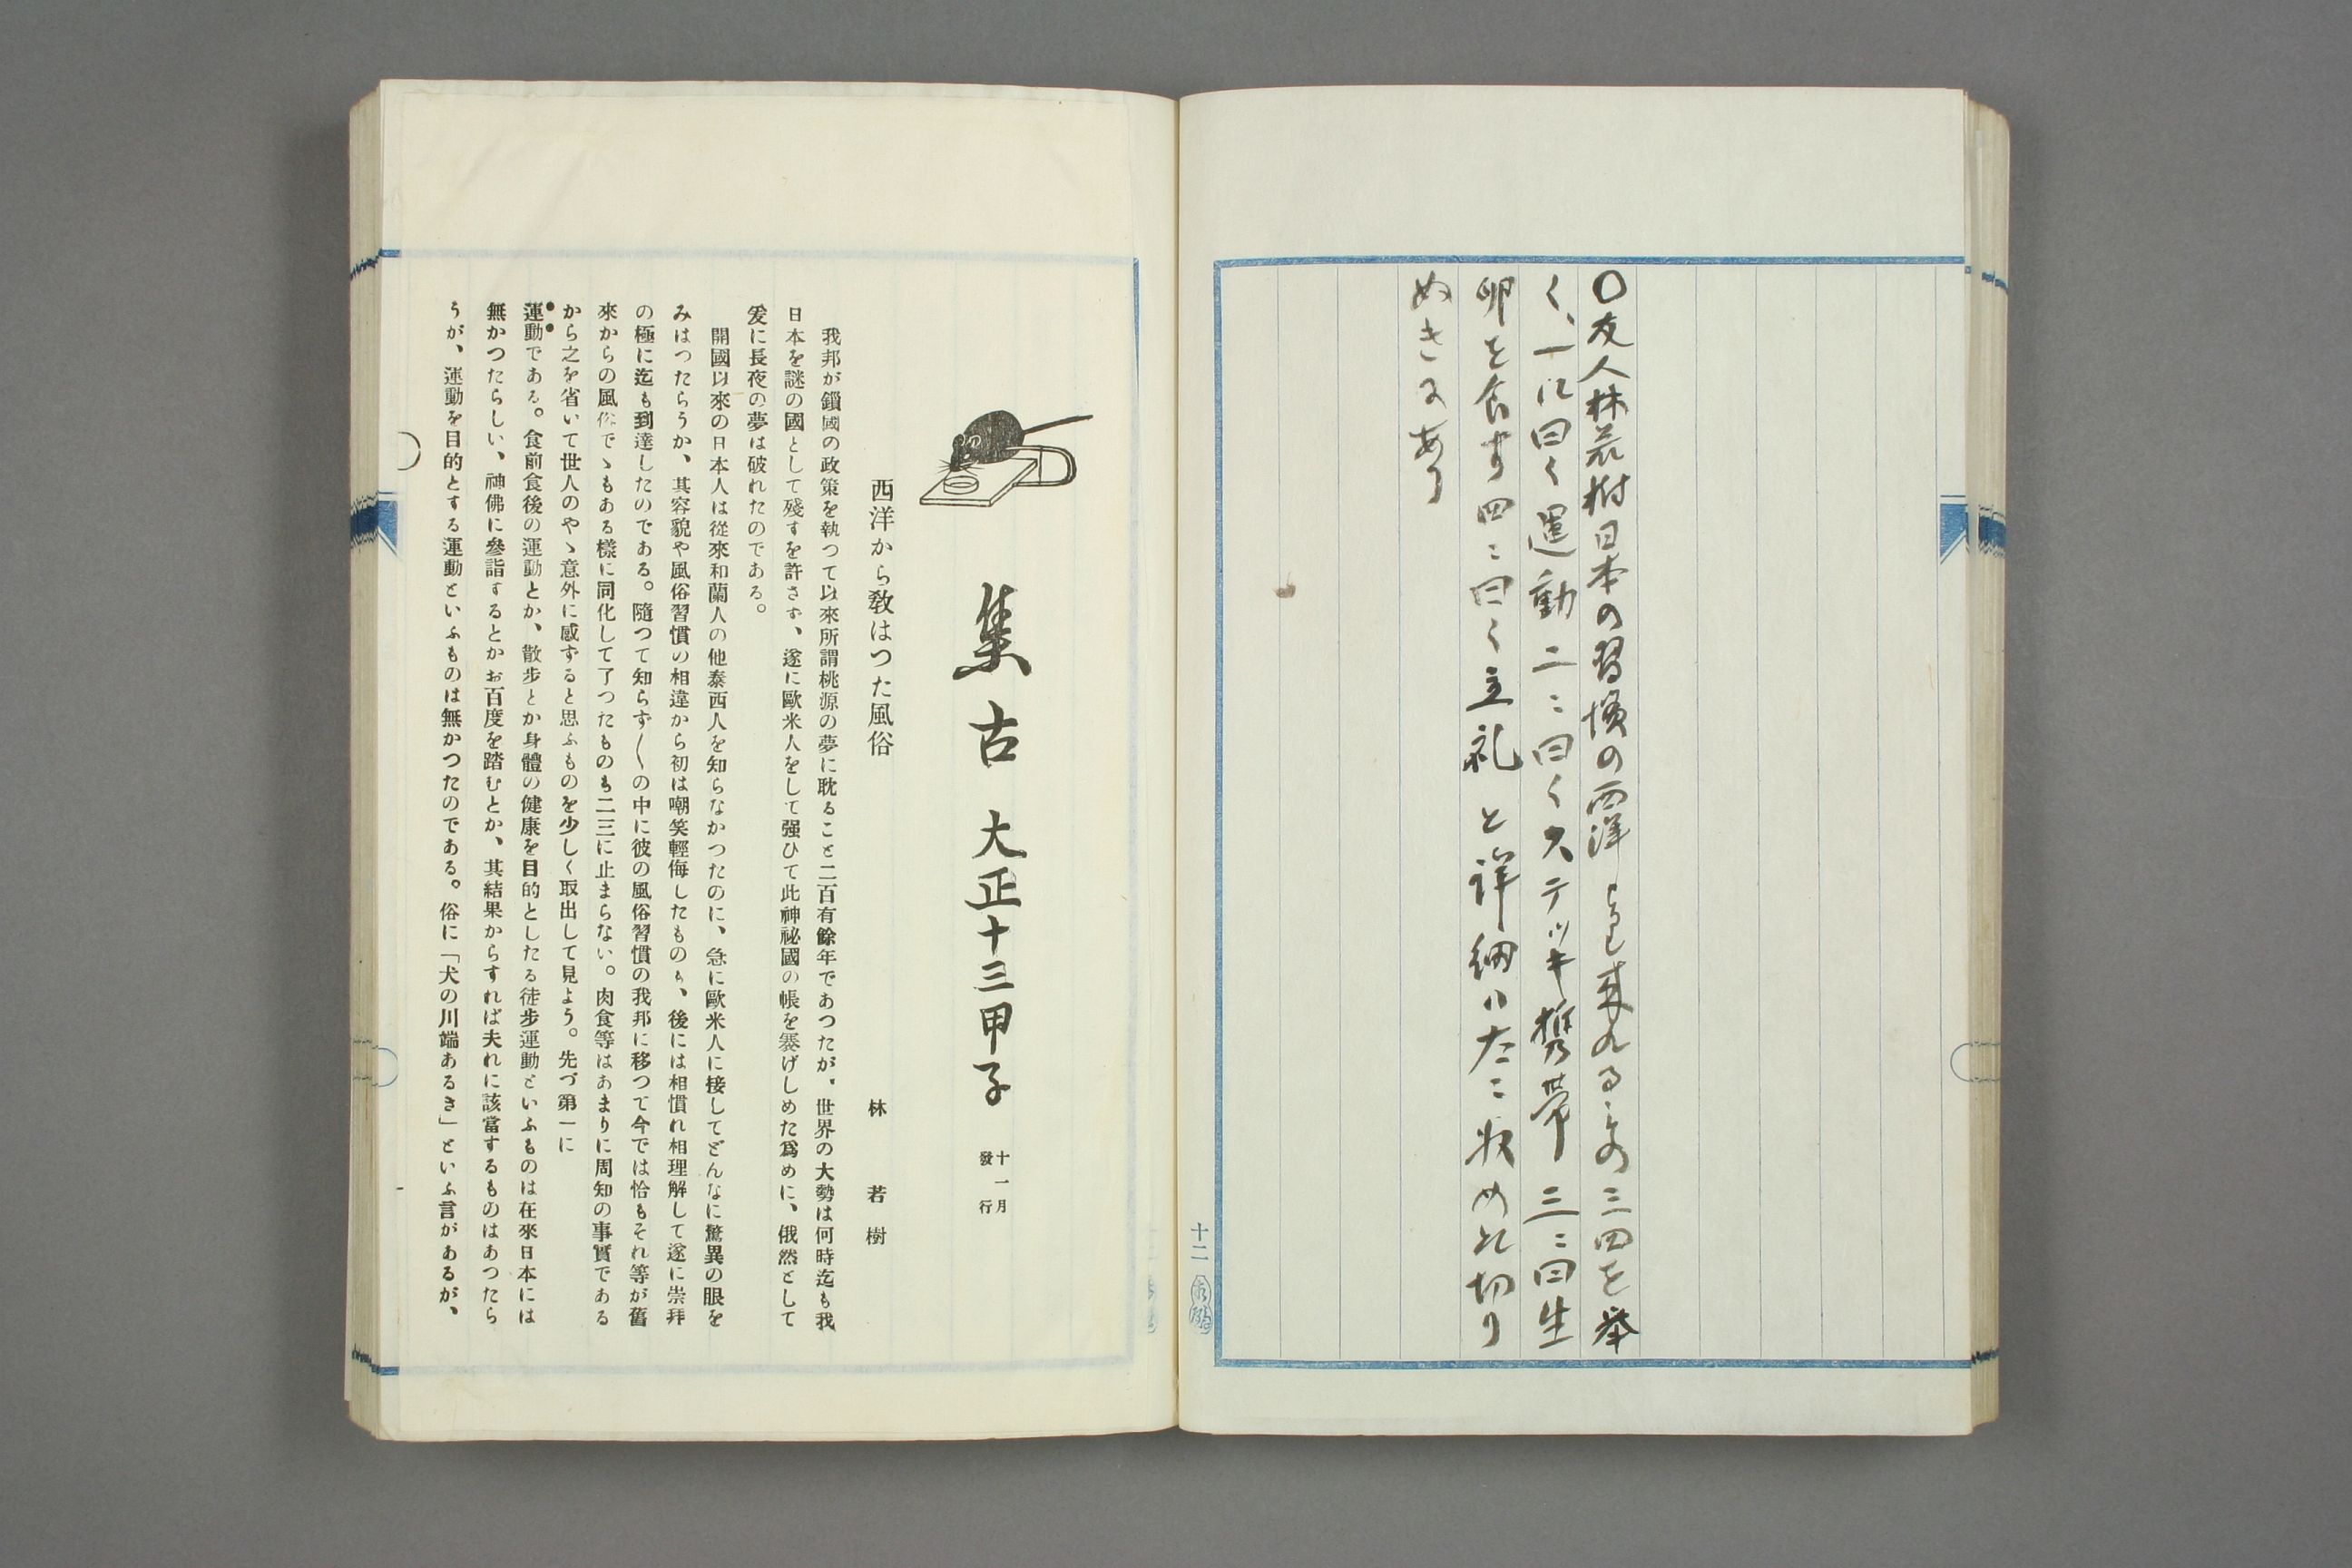 〇友人林若樹日本の習慣の西洋より来れるもの三四を挙
く、一に曰く運動二ニ曰くステッキ携帯三ニ曰生
卵を食す四ニ曰く立礼と詳細ハ左ニ収めれ切り
ぬきにあり
十二
集古 大正十三甲子 十一月發行
西洋から敎はつた風俗
林若樹
我邦が鎖國の政策を執つて以來所謂桃源の夢に耽ること二百有餘年であつたが、世界の大勢は何時迄も我
日本を謎の國として殘すを許さず、遂に歐米人をして强ひて此神祕國の帳を褰げしめた爲めに、俄然として
爰に長夜の夢は破れたのである。
開國以來の日本人は從來和蘭人の他泰西人を知らなかつたのに、急に歐米人に接してどんなに驚異の眼を
みはつたらうか、其容貌や風俗習慣の相違から初は嘲笑輕侮したものも、後には相慣れ相理解して遂に崇拜
の極に迄も到達したのである。隨つて知らず〳〵の中に彼の風俗習慣の我邦に移つて今では恰もそれ等が舊
來からの風俗でゝもある樣に同化して了つたものも二三に止まらない。肉食等はあまりに周知の事實である
から之を省いて世人のやゝ意外に感ずると思ふものを少しく取出して見よう。先づ第一に
運動である。食前食後の運動とか、散步とか身體の健康を目的としたる徒步運動といふものは在來日本には
無かつたらしい、神佛に參詣するとかお百度を踏むとか、其結果からすれば夫れに該當するものはあつたら
うが、運動を目的とする運動といふものは無かつたのである。俗に「犬の川端あるき」といふ言があるが、